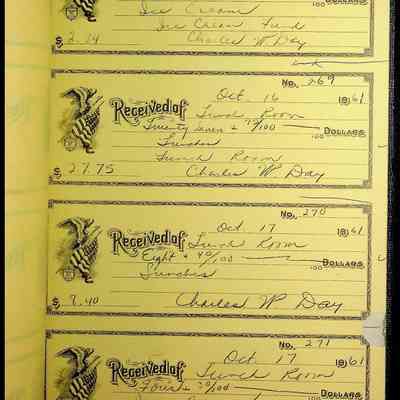 Ice Cream
100 DOLLARS
Ice Cream Fund
$ 2.14 Charles W Day
No. 269
Oct 16 1961
Received of Lunch Room
Twenty seven + 75/100 DOLLARS
Lunches
Lunch Room
$ 27.75 Charles W Day
No. 270
Oct 17 1961
Received of Lunch Room
Eight + 40/100 100 DOLLARS
Lunches
$ 8.40 Charles W Day
No. 271
Oct 17 1961
Received of Lunch Room
100 DOLLARS